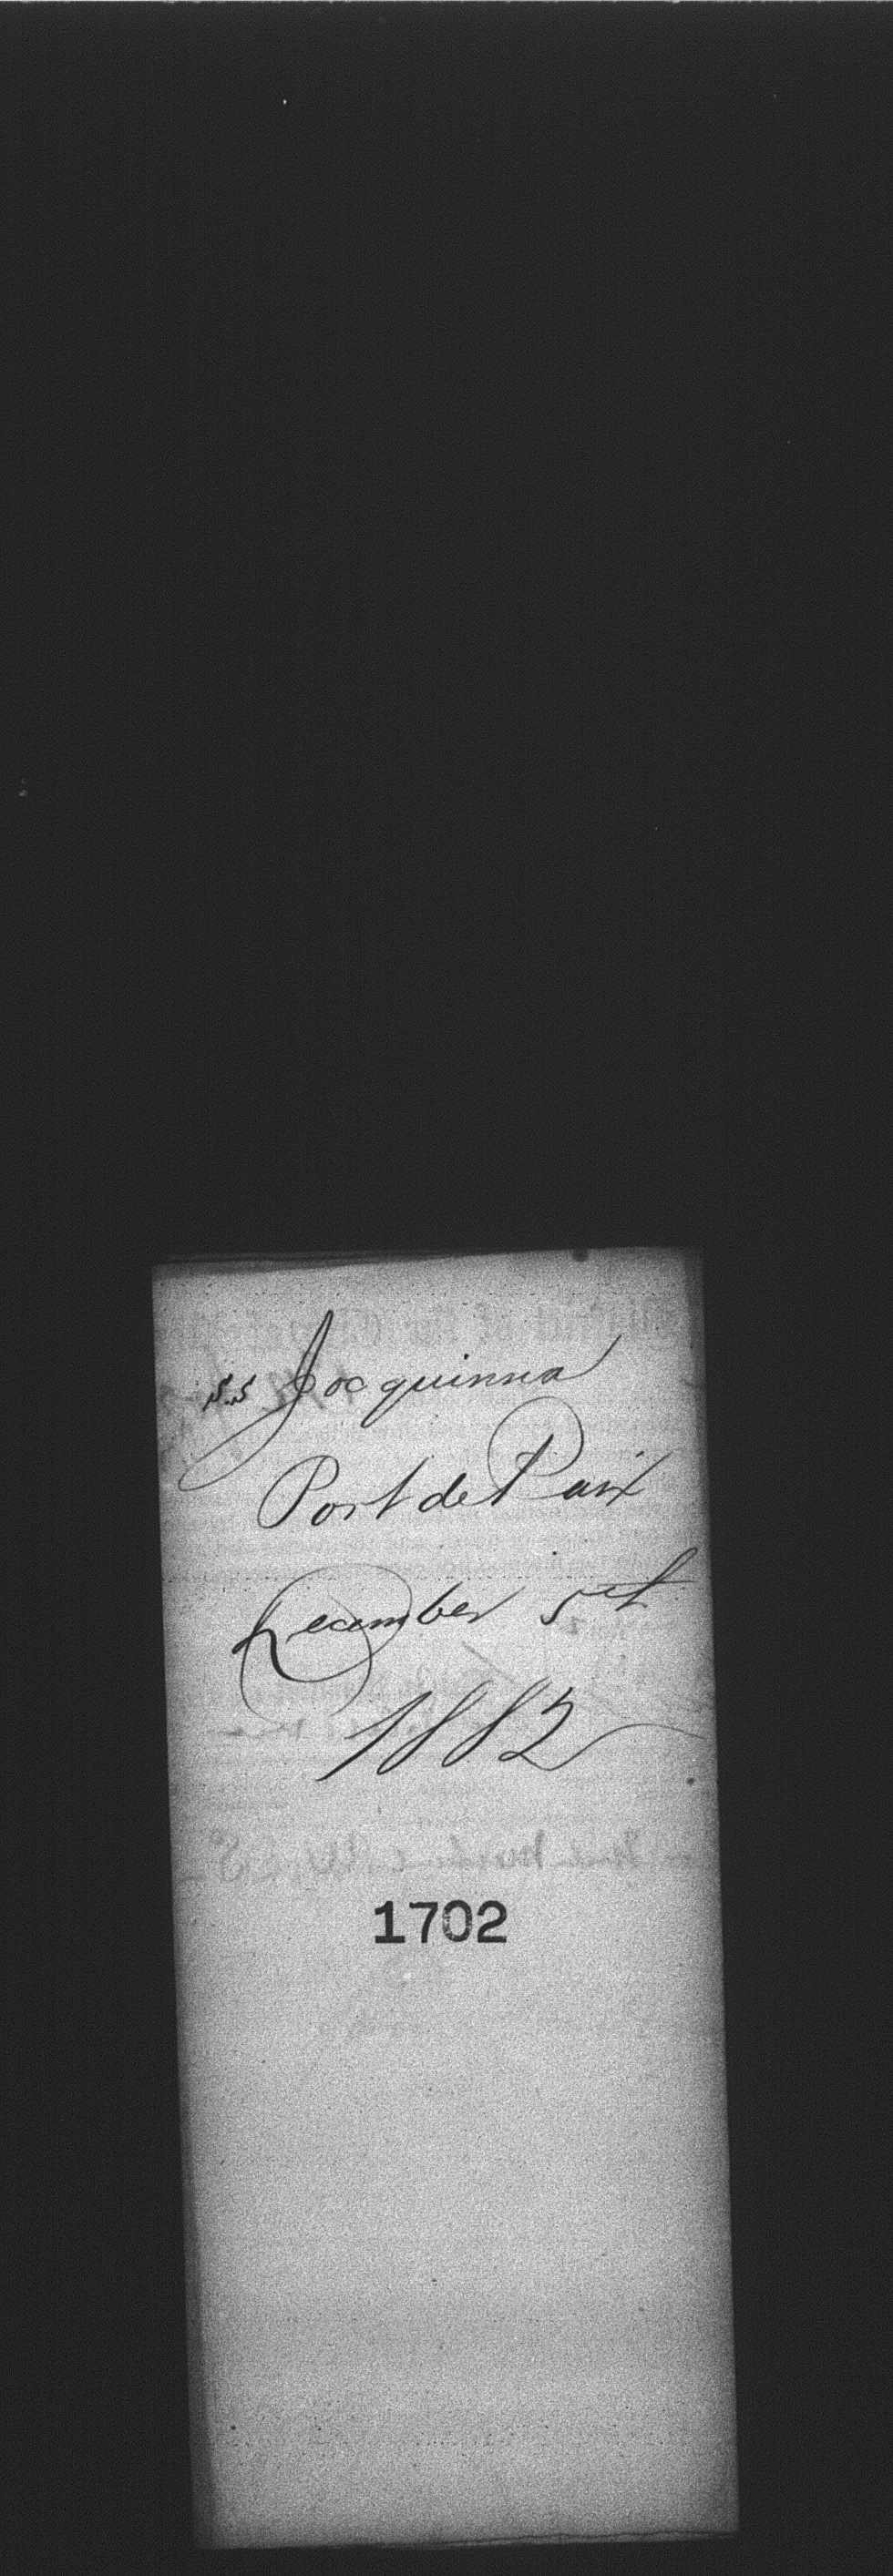 S.S Jocquinna
Port de Paix
December 5th
1882
1702